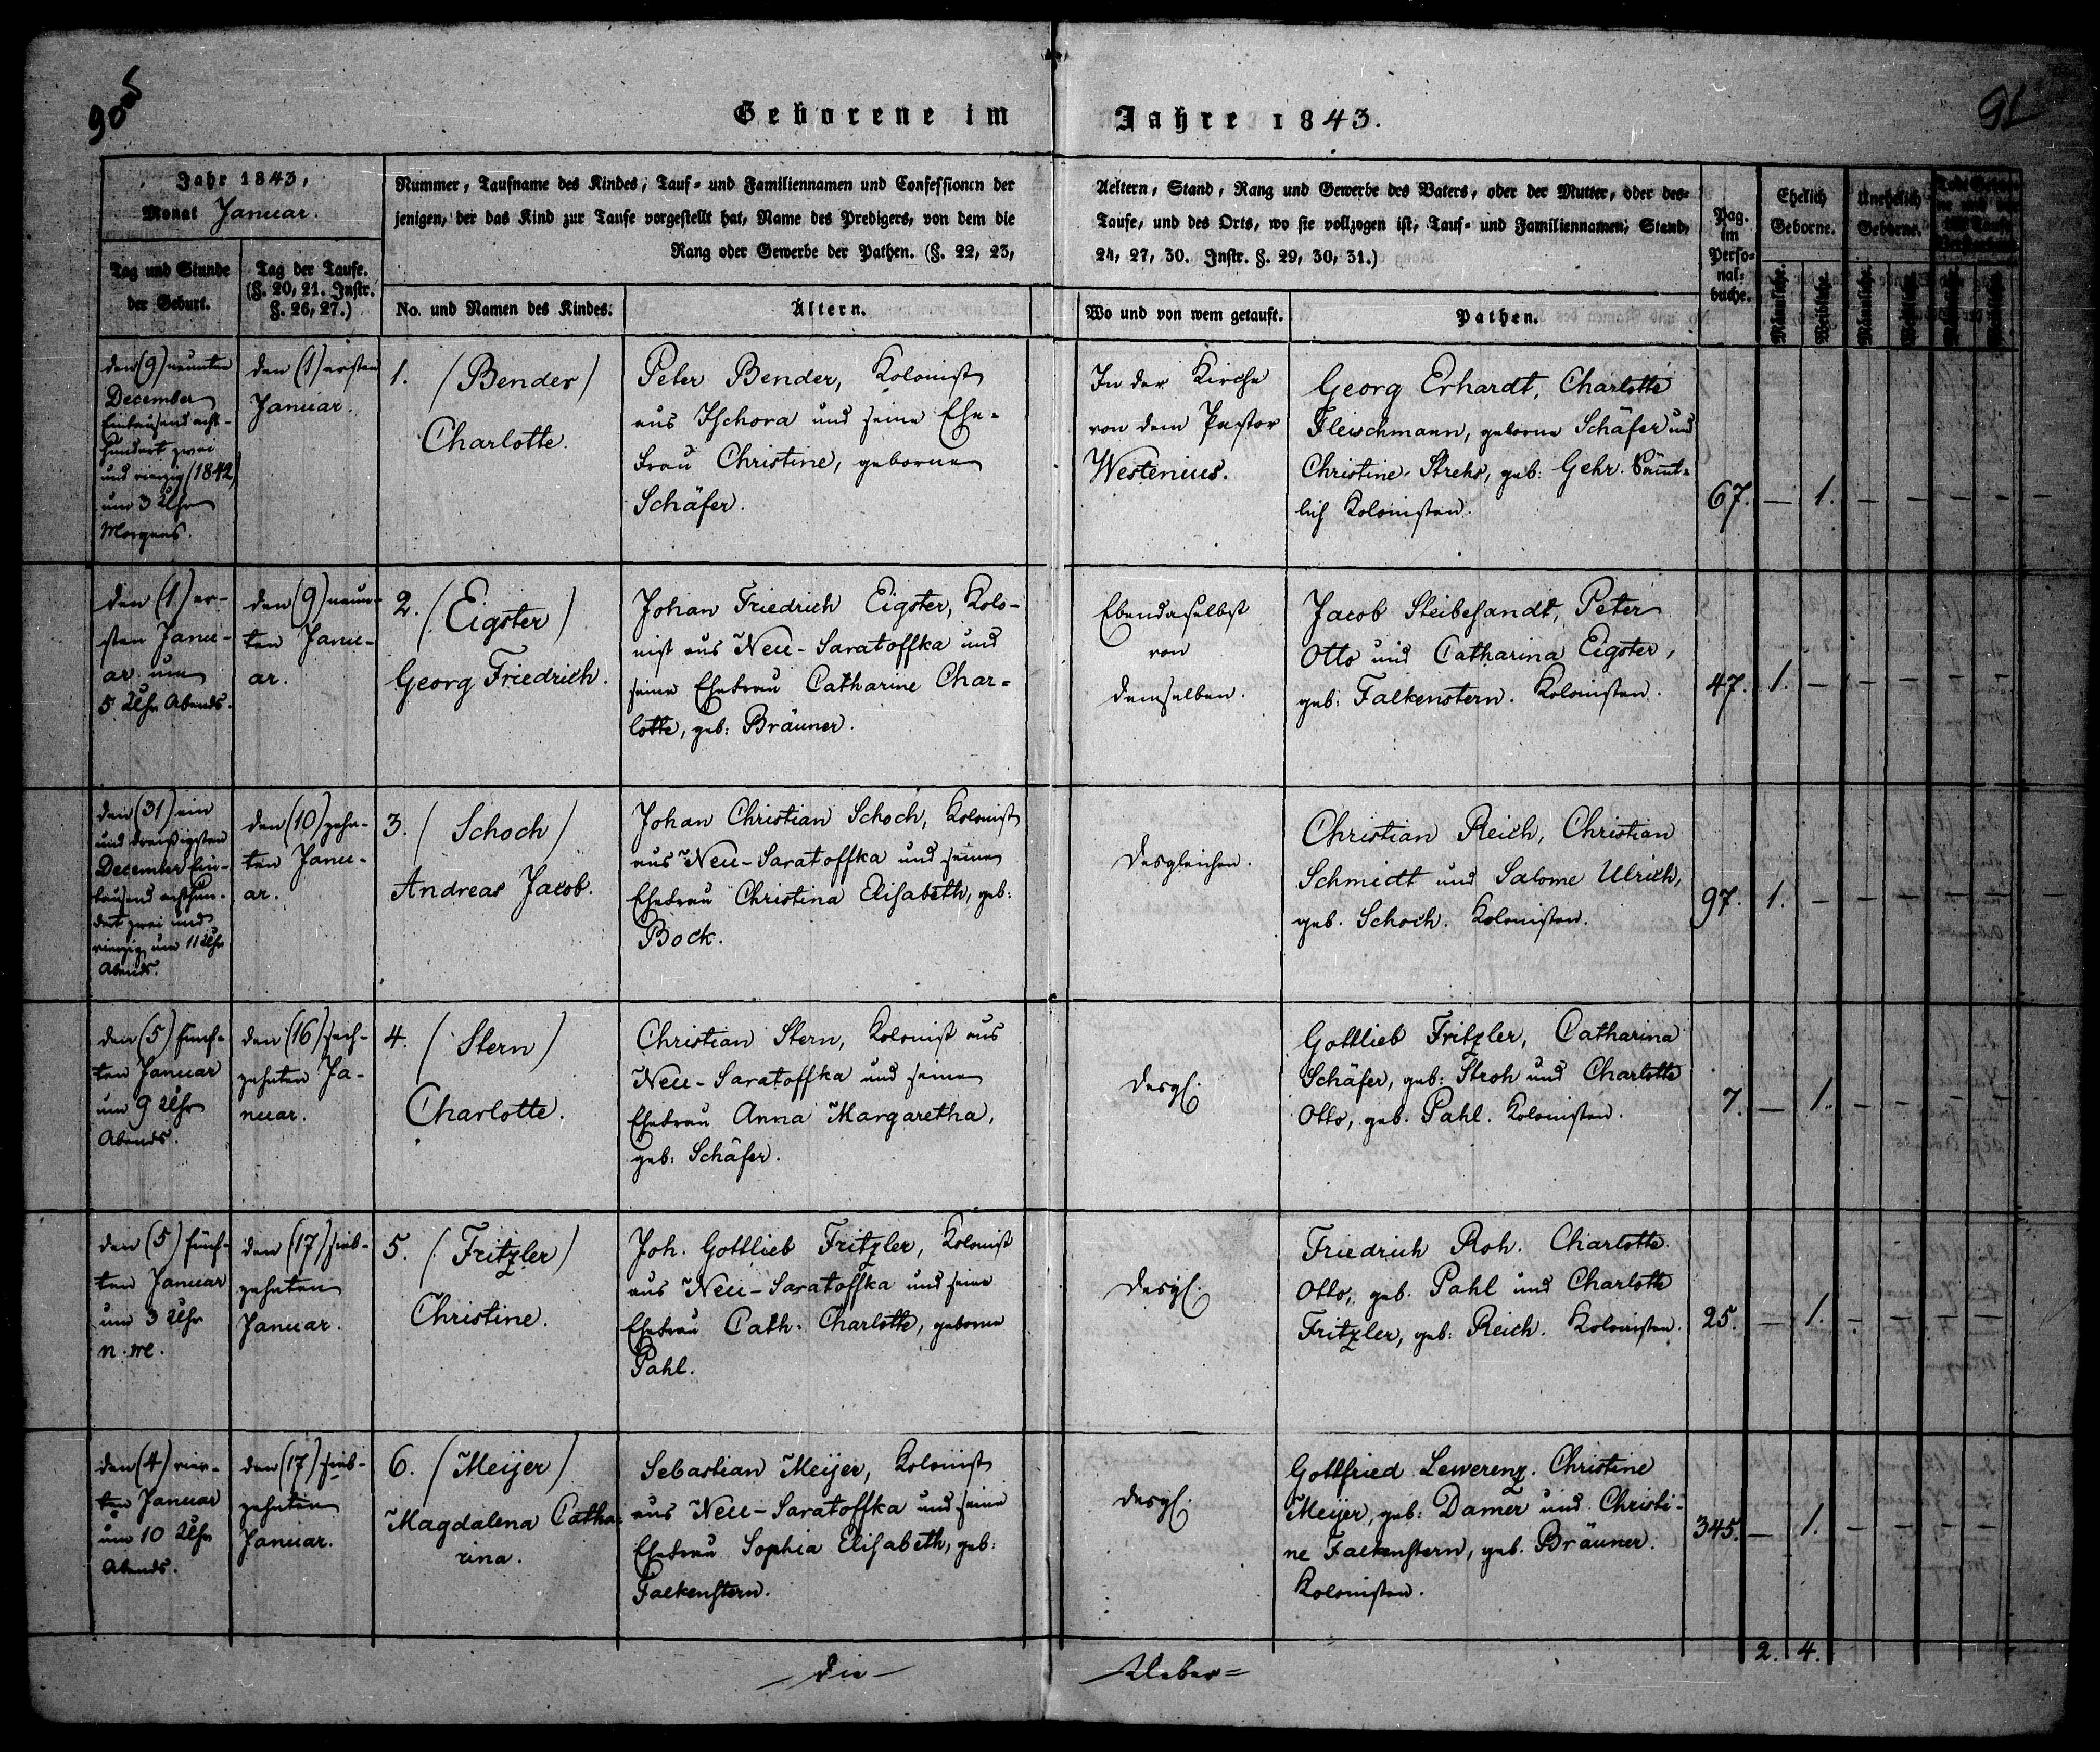 90
91
Geborene im Jahre 1843.
Jahr 1843,
Monat Januar.
Nummer, Taufname des Kindes, Tauf- und Familiennamen und Confessionen der
jenigen, der das Kind zur Taufe vorgestellt hat, Name des Predigers, von dem die
Rang oder Gewerbe der Pathen. (§. 22, 23,
Aeltern, Stand, Rang und Gewerbe des Vaters, oder der Mutter, oder des-
Taufe, und des Orts, wo sie vollzogen ist, Tauf- und Familiennamen, Stand,
24, 27, 30. Instr. §. 29, 30, 31.)
Pag.
im
Perso-
nal-
buche.
Ehelich
Geborne.
Unehelich
Geborne.
Männliche.
Weibliche.
Männliche.
Tag und Stunde
der Geburt.
Tag der Taufe.
(§. 20, 21. Instr.
§. 26, 27.)
No. und Namen des Kindes.
Ältern.
Wo und von wem getauft.
Pathen.
den (9) neunten
December
Eintausend acht-
hundert zwei
und vierzig (1842)
um 3 Uhr
Morgens.
den (1) ersten
Januar.
1. (Bender)
Charlotte.
Peter Bender, Kolonist
aus Ischora und seine Ehe-
frau Christine, geborne
Schäfer.
In der Kirche
von dem Pastor
Westenius.
Georg Erhardt, Charlotte
Fleischmann, geborne Schäfer und
Christine Strehs, geb: Gehr. Sämt-
lich Kolonisten.
67. — 1. — — — —
den (1) er-
sten Janu-
ar um
5 Uhr Abends.
den (9) neun-
ten Janu-
ar.
2. (Eigster)
Georg Friedrich.
Johan Friedrich Eigster, Kolo-
nist aus Neu-Saratoffka und
seine Ehefrau Catharine Char-
lotte, geb: Bräuner.
Ebendaselbst
von
demselben.
Jacob Steibesandt, Peter
Otto und Catharina Eigster,
geb: Falkenstern. Kolonisten.
47. 1. — — — — —
den (31) ein
und dreißigsten
December Ein-
tausend achthun-
dert zwei und
vierzig um 11 Uhr
Abends.
den (10) zehn-
ten Janu-
ar.
3. (Schoch)
Andreas Jacob.
Johan Christian Schoch, Kolonist
aus Neu-Saratoffka und seine
Ehefrau Christina Elisabeth, geb:
Bock.
desgleichen.
Christian Reich, Christian
Schmidt und Salome Ulrich,
geb. Schoch. Kolonisten.
97. 1. — — — — —
den (5) fünf-
ten Januar
um 9 Uhr
Abends.
den (16) sech-
zehnten Ja-
nuar.
4. (Stern)
Charlotte.
Christian Stern, Kolonist aus
Neu-Saratoffka und seine
Ehefrau Anna Margaretha,
geb: Schäfer.
desgl.
Gottlieb Fritzler, Catharina
Schäfer, geb: Stroh und Charlotte
Otto, geb. Pahl. Kolonisten.
7. — 1. — — — —
den (5) fünf-
ten Januar
um 3 Uhr
n. m.
den (17) sieb-
zehnten
Januar.
5. (Fritzler)
Christine.
Joh. Gottlieb Fritzler, Kolonist
aus Neu-Saratoffka und seine
Ehefrau Cath. Charlotte, geborne
Pahl.
desgl.
Friedrich Roh. Charlotte
Otto, geb. Pahl und Charlotte
Fritzler, geb: Reich. Kolonisten.
25. — 1. — — — —
den (4) vier-
ten Januar
um 10 Uhr
Abends.
den (17) sieb-
zehnten
Januar.
6. (Meijer)
Magdalena Catha-
rina.
Sebastian Meijer, Kolonist
aus Neu-Saratoffka und seine
Ehefrau Sophia Elisabeth, geb:
Falkenstern.
desgl.
Gottfried Lewerenz. Christine
Meijer, geb: Damer und Christi-
ne Falkenstern, geb. Bräuner.
Kolonisten.
345. — 1. — — — —
2. 4.
die — Ueber=